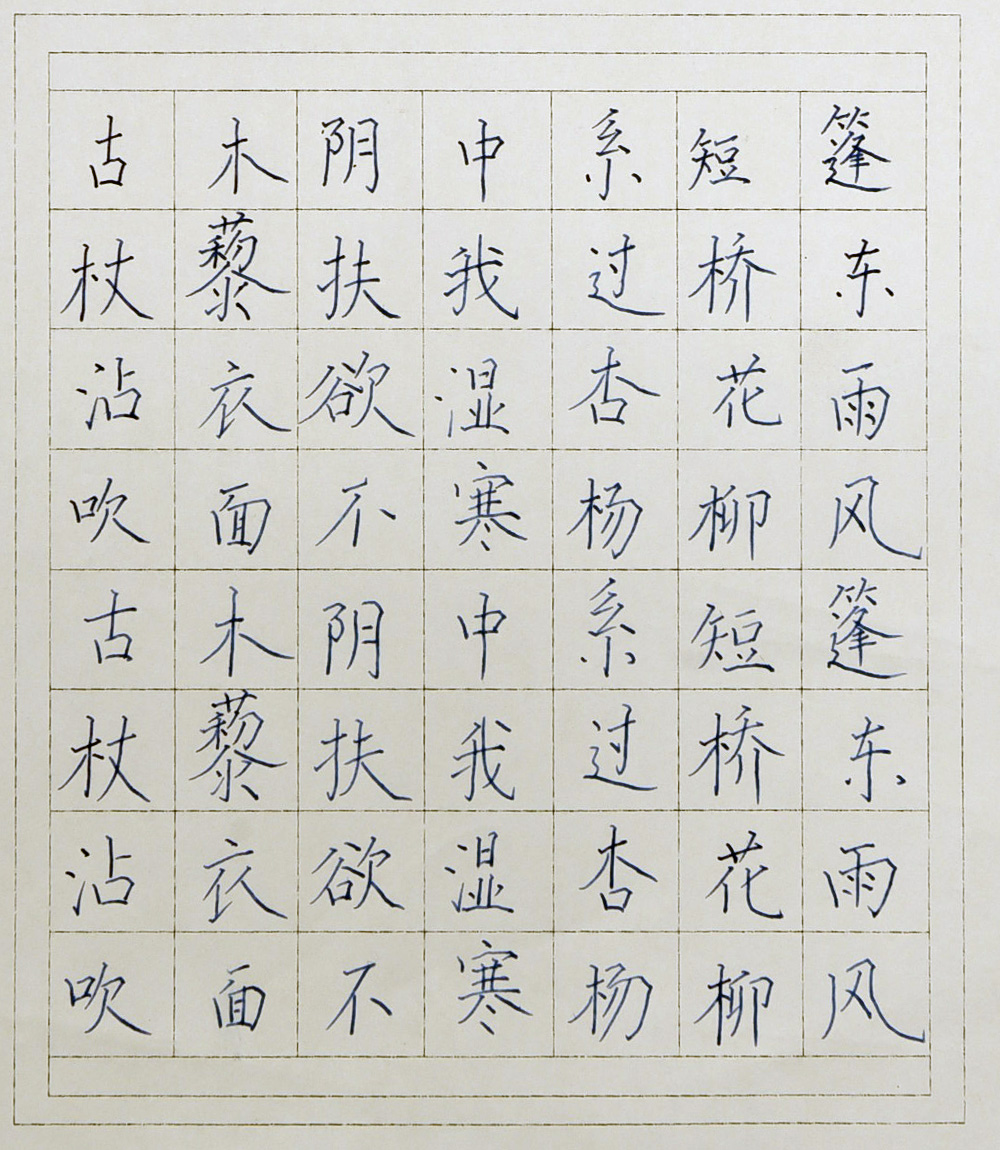 古木阴中系短篷
杖藜扶我过桥东
沾衣欲湿杏花雨
吹面不寒杨柳风
古木阴中系短篷
杖藜扶我过桥东
沾衣欲湿杏花雨
吹面不寒杨柳风